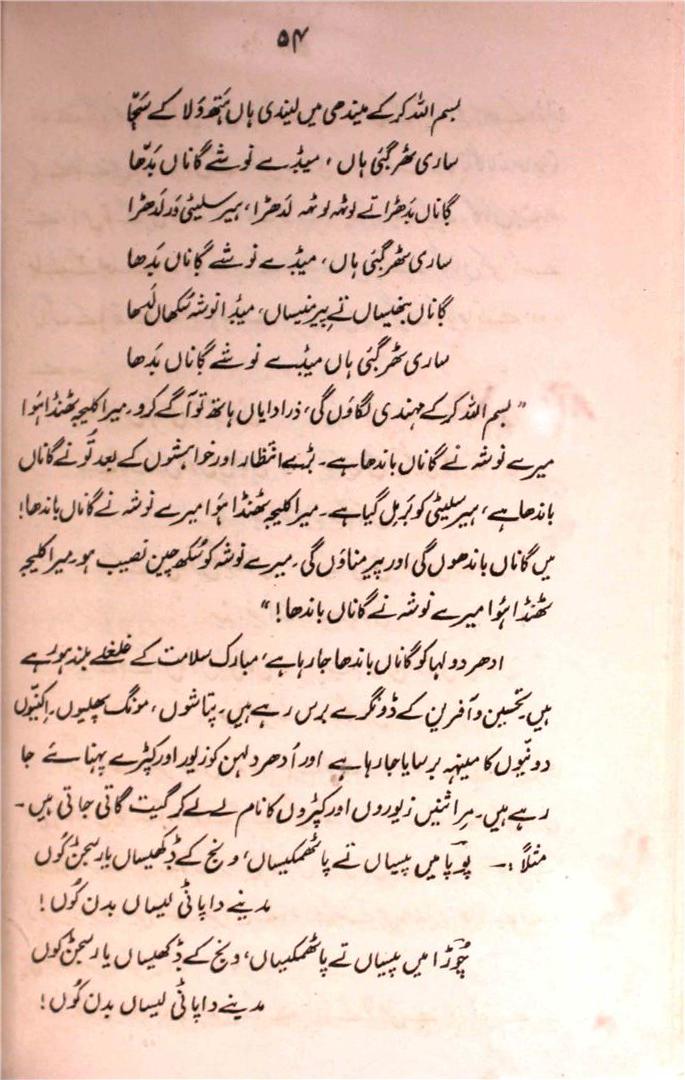 ۵۴
بسم اللہ کر کے میندھی میں لیندی ہاں ہتھ وَلا کے سَجّا
ساری ٹھر گئی ہاں، میڈے نوشے گاناں بَدّھا
گاناں بَدھڑا تے لوٹھ لوٹھ لَدھڑا، ہیر سلیٹی وَر لَدھڑا
ساری ٹھر گئی ہاں، میڈے نوشے گاناں بَدھا
گاناں بنھیساں تے پیر منیساں، میڈا نوشہ سُکھاں لَدھا
ساری ٹھر گئی ہاں میڈے نوشے گاناں بَدھا
"بسم اللہ کر کے مہندی لگاؤں گی، ذرا دایاں ہاتھ تو آگے کرو۔ میرا کلیجہ ٹھنڈا ہُوا
میرے نوشہ نے گاناں باندھا ہے۔ بڑے انتظار اور خواہشوں کے بعد تُو نے گاناں
باندھا ہے، ہیر سلیٹی کو بَر مِل گیا ہے۔ میرا کلیجہ ٹھنڈا ہُوا میرے نوشہ نے گاناں باندھا!
میں گاناں باندھوں گی اور پیر مناؤں گی۔ میرے نوشہ کو سُکھ چین نصیب ہو۔ میرا کلیجہ
ٹھنڈا ہُوا میرے نوشہ نے گاناں باندھا!"
ادھر دولہا کو گاناں باندھا جا رہا ہے، مبارک سلامت کے غلغلے بلند ہو رہے
ہیں۔ تحسین و آفرین کے ڈونگرے برس رہے ہیں۔ پتاشوں، مونگ پھلیوں۔ اِکنّیوں
دونّیوں کا مینہہ برسایا جا رہا ہے اور اُدھر دلہن کو زیور اور کپڑے پہنائے جا
رہے ہیں۔ مراثنیں زیوروں اور کپڑوں کا نام لے لے کر گیت گاتی جاتی ہیں۔
مثلاً :۔ پوپا میں پیساں تے پا ٹھمکیساں، ونج کے ڈکھیساں یار سجن کُوں
مدینے دا پاٹی لیساں بدن کُوں!
چُوڑا میں پیساں تے پا ٹھمکیساں، ونج کے ڈکھیساں یار سجن کوں
مدینے دا پاٹی لیساں بدن کُوں!